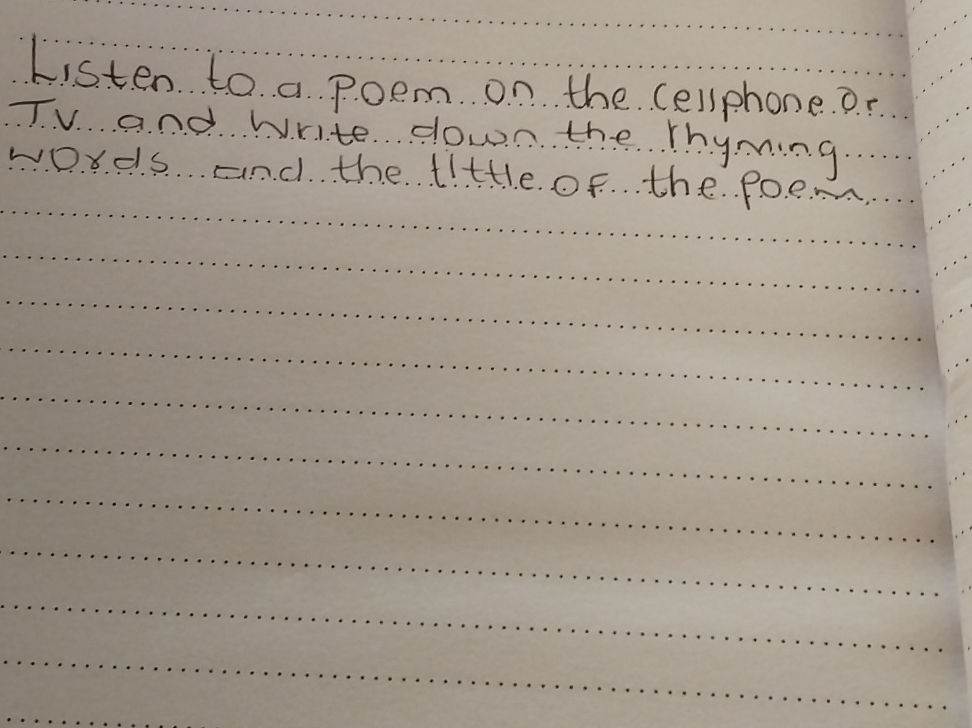 Listen to a poem on the cellphone or
TV and write down the rhyming
words and the tittle of the poem.